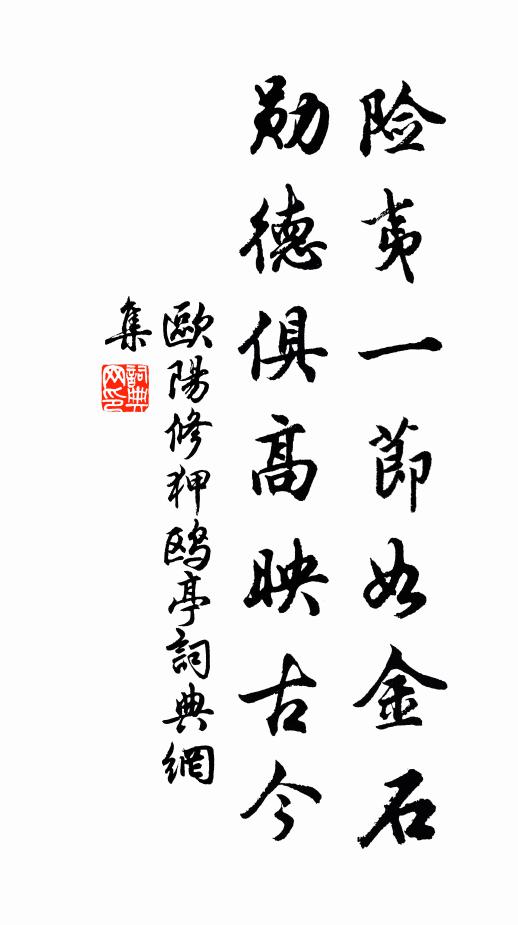 险夷一節如金石
勋德俱高映古今
歐陽修狎鸥亭詞典網
集
詞典网印